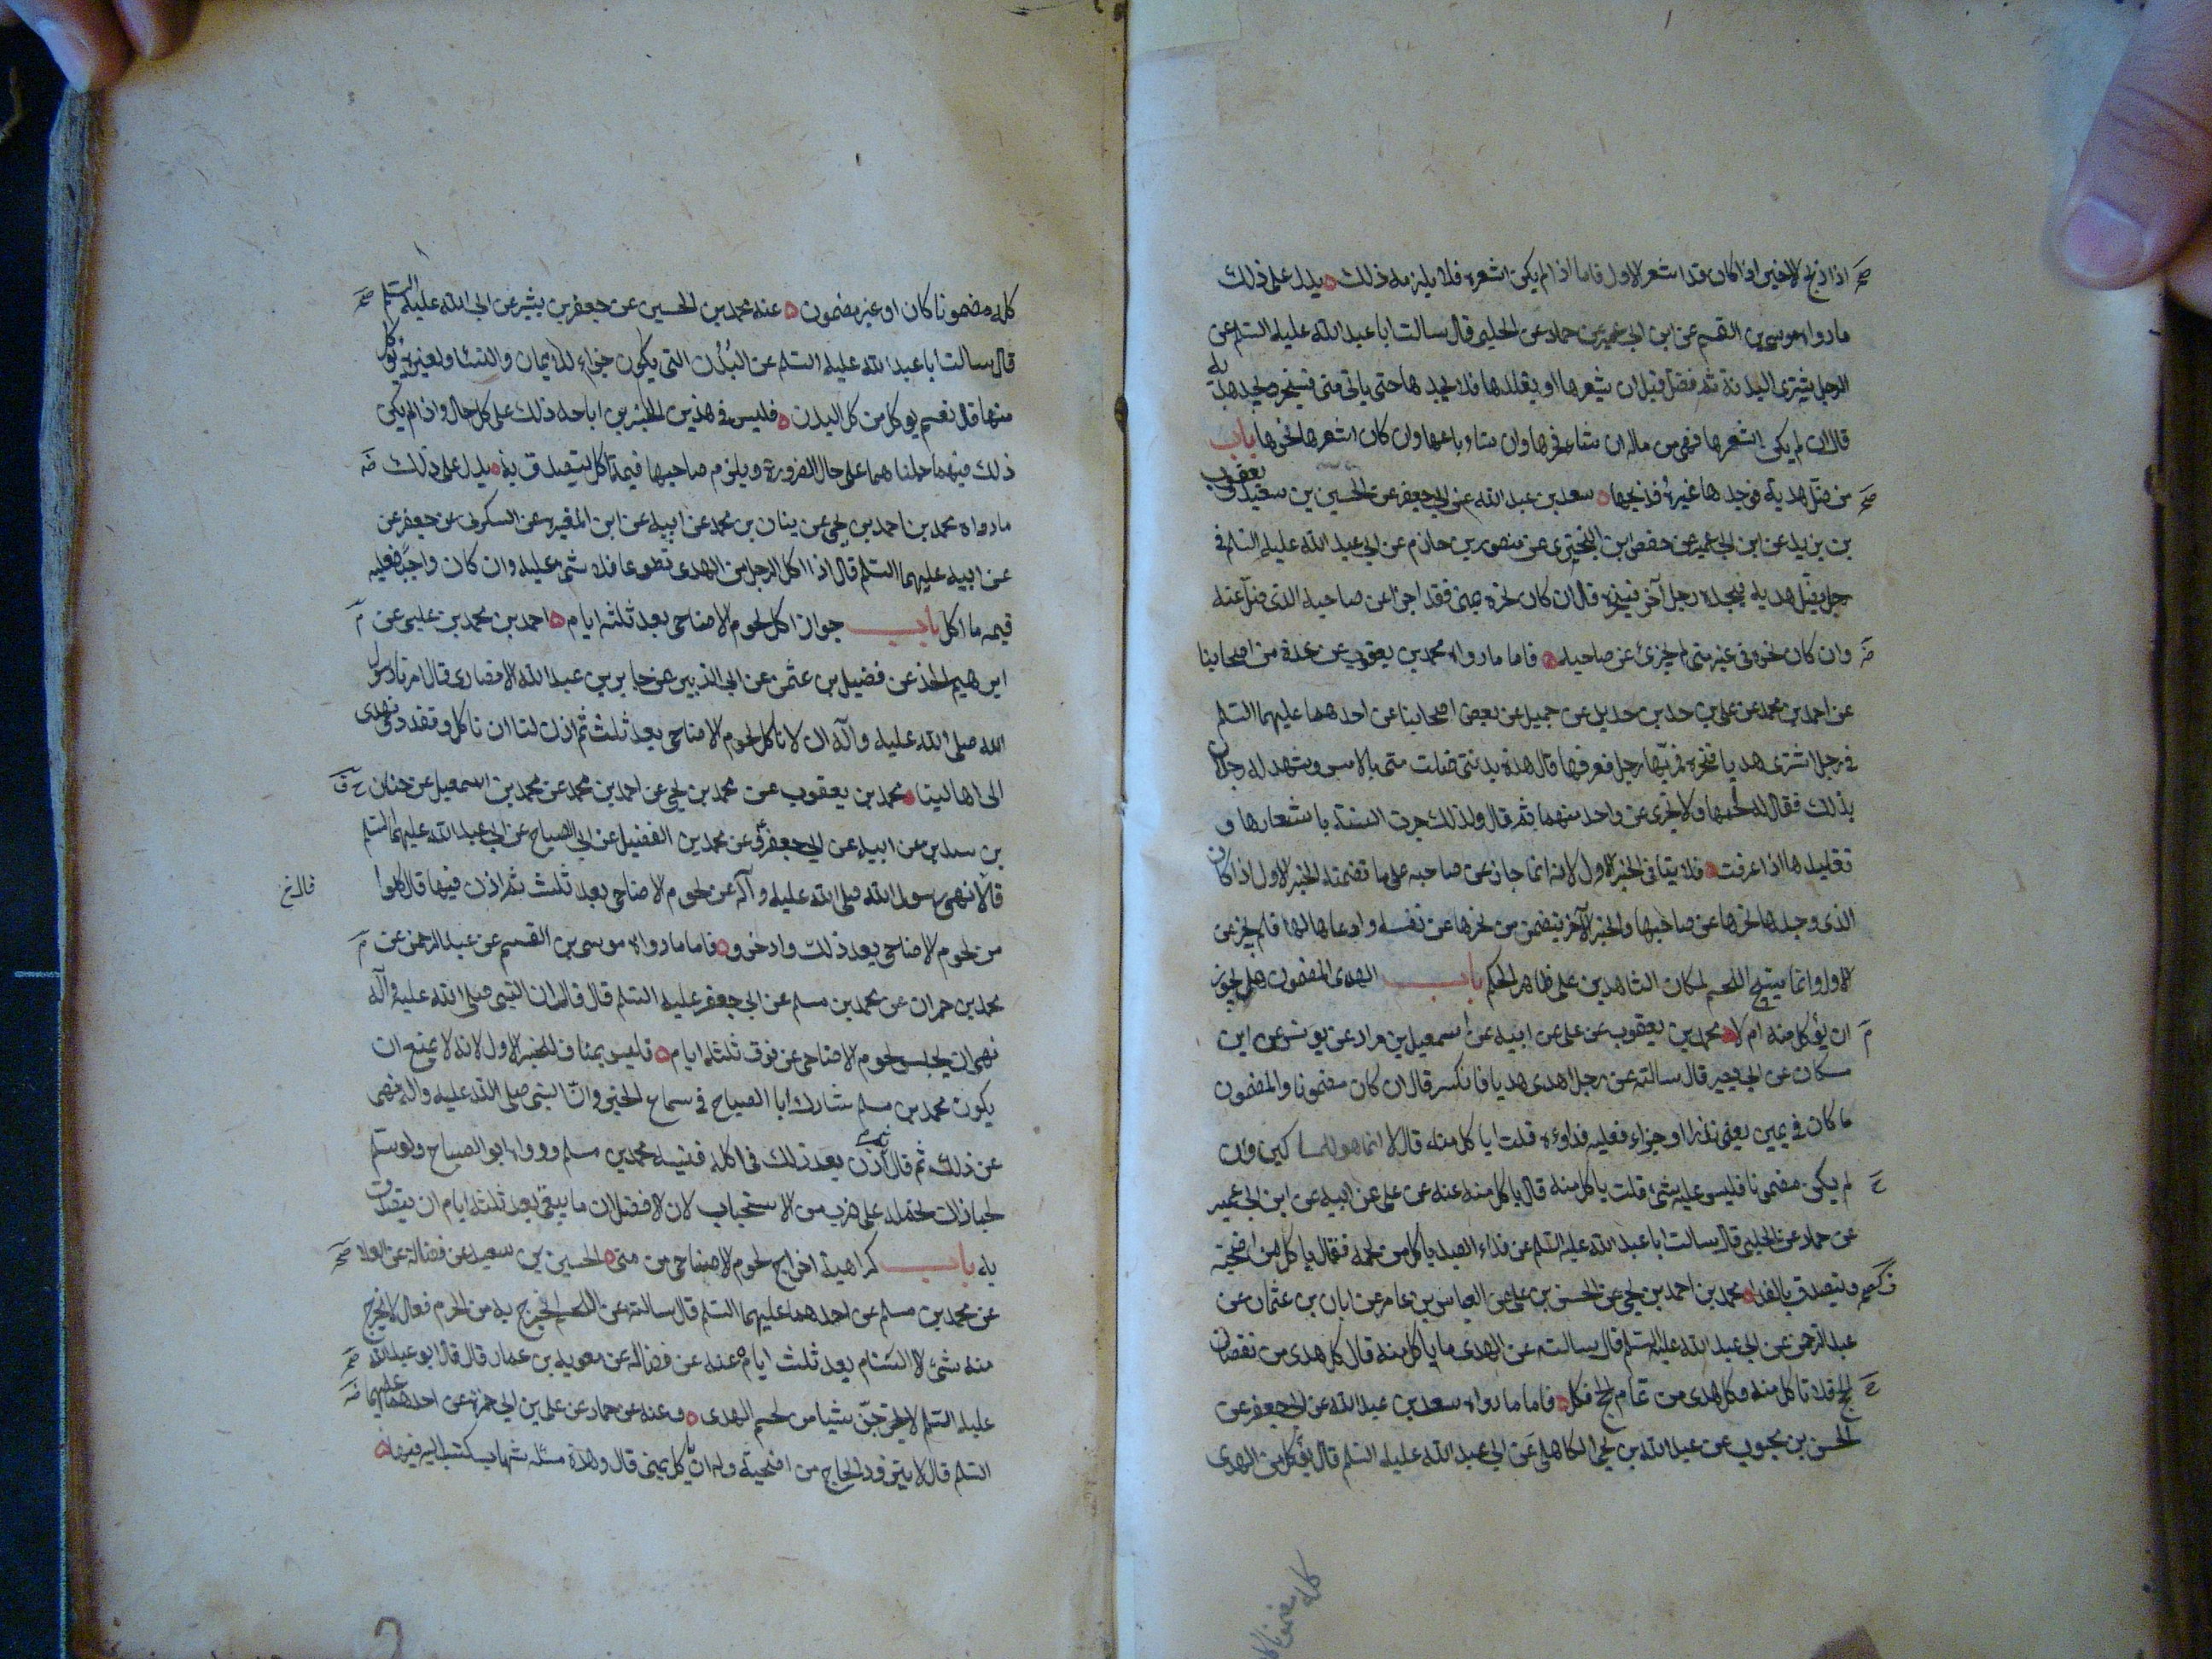 اذا ذبح الاخير اذا كان قد اشعر الاول فاما اذا لم يكن اشعره فلا يلزمه ذلك يدل على ذلك
ما رواه موسى بن القسم عن ابن ابي عمير عن حماد عن الحلبي قال سالت ابا عبد الله عليه السلم عن
الرجل يشترى البدنة ثم تضل قبل ان يشعرها او يقلدها فلا يجدها حتى ياتى منى فينحر ويجد هديه
قال ان لم يكن اشعرها فهى من ماله ان شاء نحرها وان شاء باعها وان كان اشعرها نحرها باب
من ضل هديه فوجدها غيره فذبحها سعد بن عبد الله عن ابي جعفر عن الحسين بن سعيد ويعقوب
بن يزيد عن ابن ابي عمير عن حفص ابن البختري عن منصور بن حازم عن ابي عبد الله عليه السلم في
رجل يضل هديه فيجده رجل آخر فينحره قال ان كان نحره بمنى فقد اجزا عن صاحبه الذى ضل عنه
وان كان نحره في غير منى لم يجزئ عن صاحبه فاما ما رواه محمد بن يعقوب عن عدة من اصحابنا
عن احمد بن محمد عن علي بن حديد عن جميل عن بعض اصحابنا عن احدهما عليهما السلم
في رجل اشترى هديا فنحره فمر بها رجل فعرفها قال هذه بدنتى ضلت منى بالامس وشهد له رجلان
بذلك فقال له لحمها ولا تجزى عن واحد منهما ثم قال ولذلك جرت السنة باشعارها و
تقليدها اذا عرفت فلا ينافى الخبر الاول لانه انما جاز عن صاحبه على ما تضمنه الخبر الاول اذا كان
الذى وجدها نحرها عن صاحبها والخبر الآخر يتضمن من نحرها عن نفسه وادعاها لها فلم يجز عن
الاول وانما يبتع اللحم لمكان الشاهدين على ظاهر الحكم باب الهدى المضمون هل يجوز
ان يؤكل منه ام لا محمد بن يعقوب عن على عن ابيه عن اسمعيل بن مرار عن يونس عن ابن
مسكان عن ابي بصير قال سالته عن رجل اهدى هديا فانكسر قال ان كان مضمونا والمضمون
ما كان في يمين يعنى نذرا او جزاء فعليه فداؤه قلت اياكل منه قال لا انما هو للمساكين وان
لم يكن مضمونا فليس عليه شئ قلت ياكل منه قال ياكل منه عنه عن على عن ابيه عن ابن ابي عمير
عن حماد عن الحلبي قال سالت ابا عبد الله عليه السلم عن فداء الصيد ياكل من لحمه فقال ياكل من اضحيته
ويتصدق بالفداء محمد بن احمد بن يحيى عن الحسن بن على عن العباس بن عامر عن ابان بن عثمان عن
عبد الرحمن عن ابي عبد الله عليه السلم قال سالته عن الهدى ما ياكل منه قال كل هدى من نقصان
الحج فلا تاكل منه وكل هدى من تمام الحج فكل فاما ما رواه سعد بن عبد الله عن ابي جعفر عن
الحسن بن محبوب عن عبد الله بن يحيى الكاهلى عن ابي عبد الله عليه السلم قال يؤكل من الهدى
كله مضمونا كان
كله مضمونا كان او غير مضمون عنه محمد بن الحسين عن جعفر بن بشير عن ابي الله عليه السلم
قال سالت ابا عبد الله عليه السلم عن البُدُن التى يكون جزاء للايمان والنساء ولغيره يؤكل
منها قال نعم يؤكل من كل البدن فليس في هذين الخبرين اباحه ذلك على كل حال واذا لم يكن
ذلك فيهما حملناهما على حال الضرورة ويلزم صاحبها قيمة ما اكل يتصدق به يدل على ذلك
ما رواه محمد بن احمد بن يحيى عن بنان بن محمد عن ابيه عن ابن المغيره عن السكونى عن جعفر عن
عن ابيه عليهما السلم قال اذا اكل الرجل من الهدى تطوعا فلا شئ عليه وان كان واجبا فعليه
قيمه ما اكل باب جواز اكل لحوم الاضاحى بعد ثلثه ايام احمد بن محمد بن عليى عن
ابرهيم الحذ عن فضيل بن عثمن عن ابي الزبير عن جابر بن عبد الله الانصارى قال امرنا رسول
الله صلى الله عليه وآله ان لا ناكل لحوم الاضاحى بعد ثلث ثم اذن لنا ان ناكل ونقدد ونهدى
الى اهالينا محمد بن يعقوب عن محمد بن يحيى عن احمد بن محمد عن محمد بن اسمعيل عن حنان
بن سدير عن ابيه عن ابي جعفر وعن محمد بن الفضيل عن ابي الصباح عن ابي عبد الله عليهما السلم
قالا نهى رسول الله صلى الله عليه وآله عن لحوم الاضاحى بعد ثلث ثم اذن فيها قال كلوا
قال نخ
من لحوم الاضاحى بعد ذلك وادخروا فاما ما رواه موسى بن القسم عن عبد الرحمن عن
محمد بن حمران عن محمد بن مسلم عن ابي جعفر عليه السلم قال قال ان النبى صلى الله عليه وآله
نهى ان يحبس لحوم الاضاحى عن فوق ثلثه ايام فليس بمناف للخبر الاول لانه لا يمنع ان
يكون محمد بن مسلم شارك ابا الصباح في سماع الخبر وان النبى صلى الله عليه وآله نهى
عن ذلك ثم قال اذن بعد ذلك في اكله فنسيه محمد بن مسلم ورواه ابو الصباح ولو سلم
لجاز ان نحمله على ضرب من الاستحباب لان الافضل ان ما يبقى بعد ثلثه ايام ان يتصدق
به باب كراهية اخراج لحوم الاضاحى من منى الحسين بن سعيد عن فضاله عن العلا
عن محمد بن مسلم عن احدهما عليهما السلم قال سالته عن اللحم ايخرج به من الحرم فقال لا يخرج
منه شئ الا السنام بعد ثلث ايام عنه عن فضاله عن معويه بن عمار قال قال ابو عبد الله
عليه السلم لا تخرجن شيئا من لحم الهدى وعنه عن حماد عن على بن ابي حمزه عن احدهما عليهما
السلم قال لا يتزود الحاج من اضحيته وله ان ياكل بمنى قال وهذه مسئله شهاب كتب اليه فيها